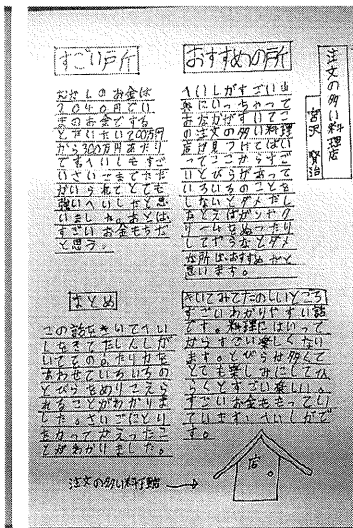 注文の多い料理店
宮沢 賢治
おすすめの所
へいしがすごい山
奥にいっちゃって
おなかがすいてこ
の注文の多い料理
店が見つけてはい
ってここからすご
いとびらがあって
いろいろのことを
しないとダメだし
たとえばがんやク
リームをぬったり
してからなどダメ
な所はおすすめかと
思います。
すごい所
むかしのお金は
2040円でい
まのお金でする
とだいたい200万円
から300万円あたり
ですへいしもすご
いさいごまでただ
かいられてとても
強いへいしだと思
いました。あとは
すごいお金もちだ
と思う。
きいてみてたのしいところ
すごいわかりやすい話
です。料理にはいって
からすごい楽しくなり
ます。とびらは多くて
とても楽しみにしてひ
らくとすごい楽しい。
すごいお金ももってい
ています。へいしがで
す。
まとめ
この話をきいてへい
しをきてたしんしが
いてその。たりかを
あわせていろいろの
とびらをめりこえら
れることがわかりま
した。さいごにとり
をかってかえったこ
とがわかりました。
注文の多い料理店→
店。